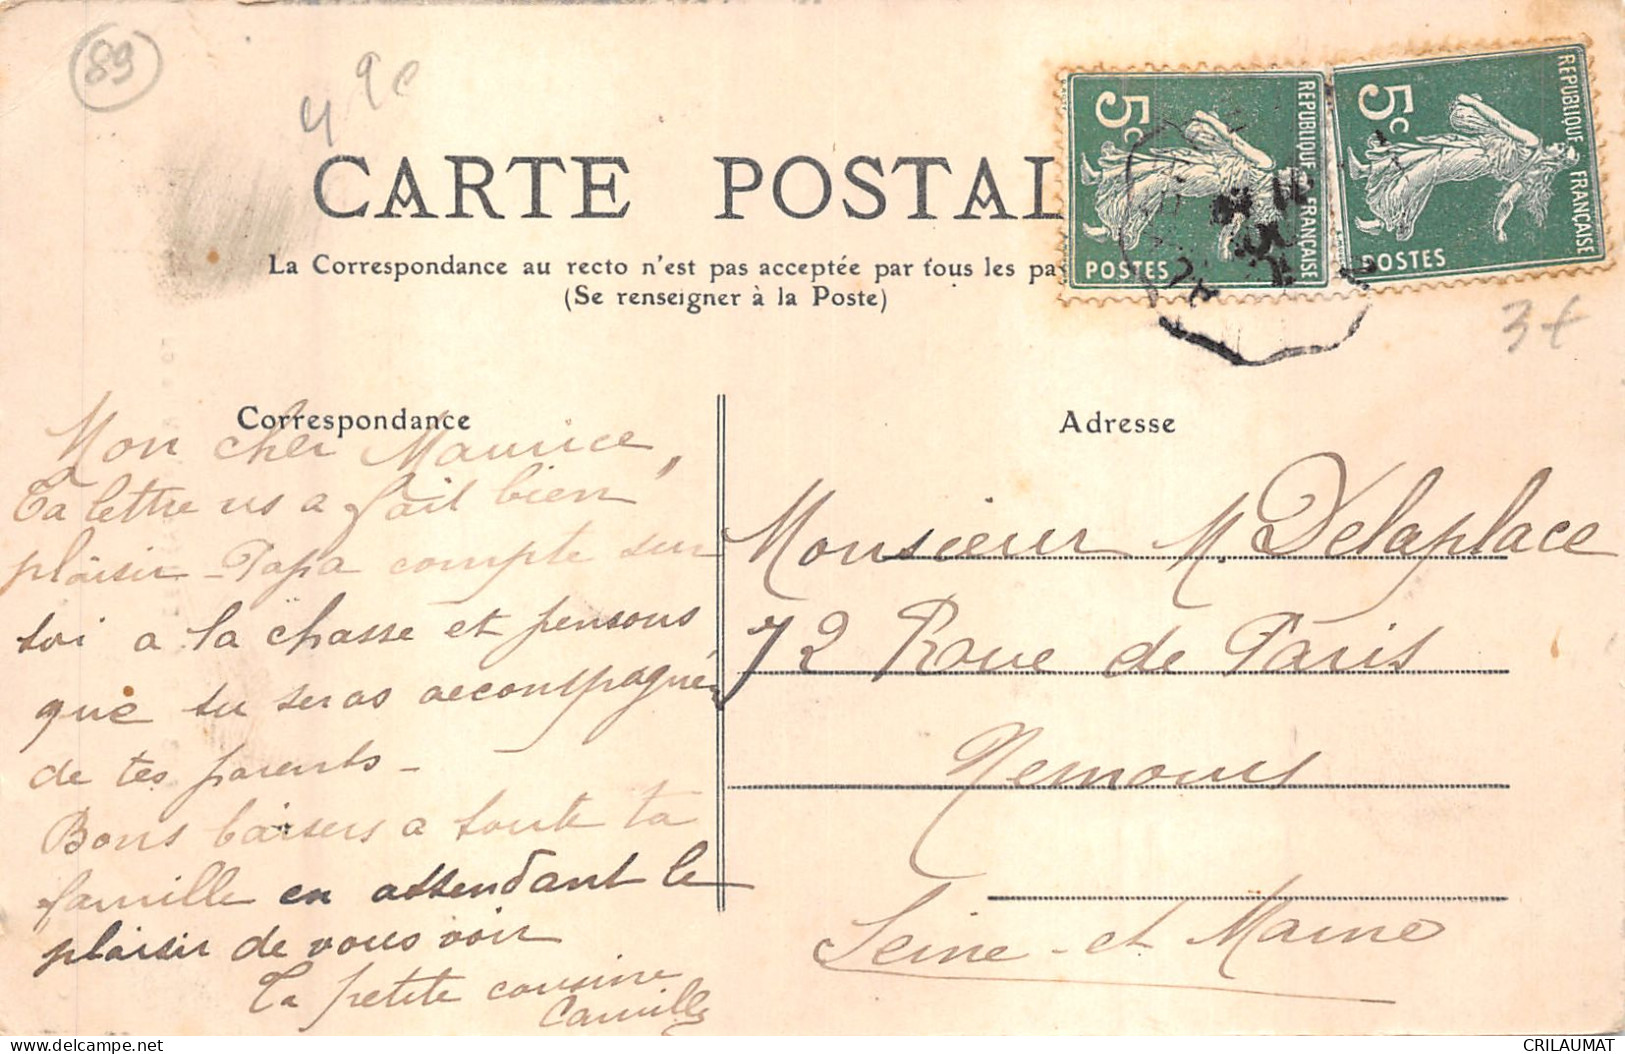 89
4 9c
CARTE POSTAL
La Correspondance au recto n'est pas acceptée par tous les pa
(Se renseigner à la Poste)
5c
REPUBLIQUE FRANÇAISE
POSTES
5c
REPUBLIQUE FRANÇAISE
POSTES
3€
Correspondance
Mon cher Maurice,
Ta lettre ns a fait bien
plaisir - Papa compte sur
toi a la chasse et pensons
que tu seras accompagné
de tes parents -
Bons baisers a toute ta
famille en attendant le
plaisir de vous voir
Ta petite cousine
Camille
Adresse
Monsieur M. Delaplace
72 Roue de Paris
Nemours
Seine-et Marne
delcampe.net
CRILAUMAT